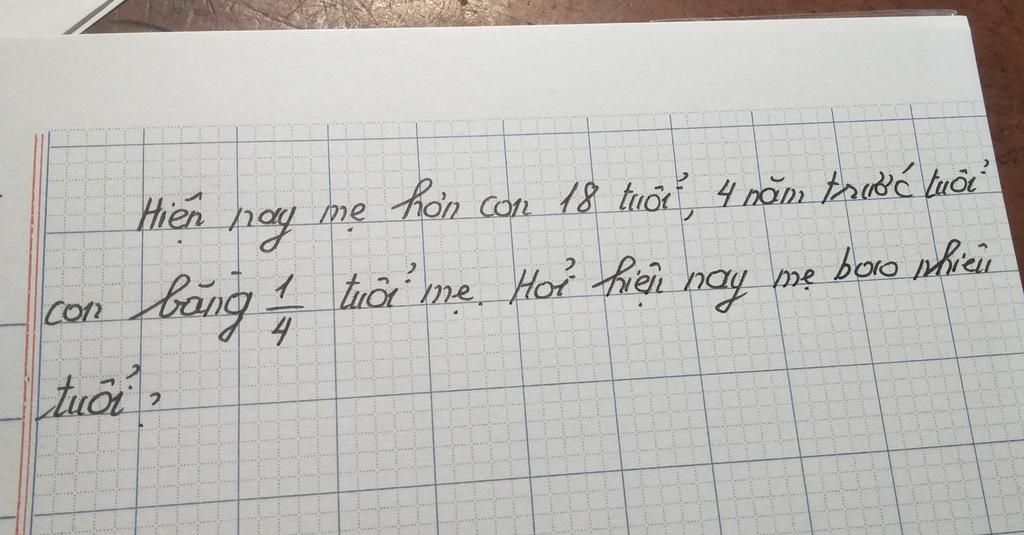 Hiện nay mẹ hơn con 18 tuổi, 4 năm trước tuổi
con bằng 1/4 tuổi mẹ. Hỏi hiện nay mẹ bao nhiêu
tuổi?